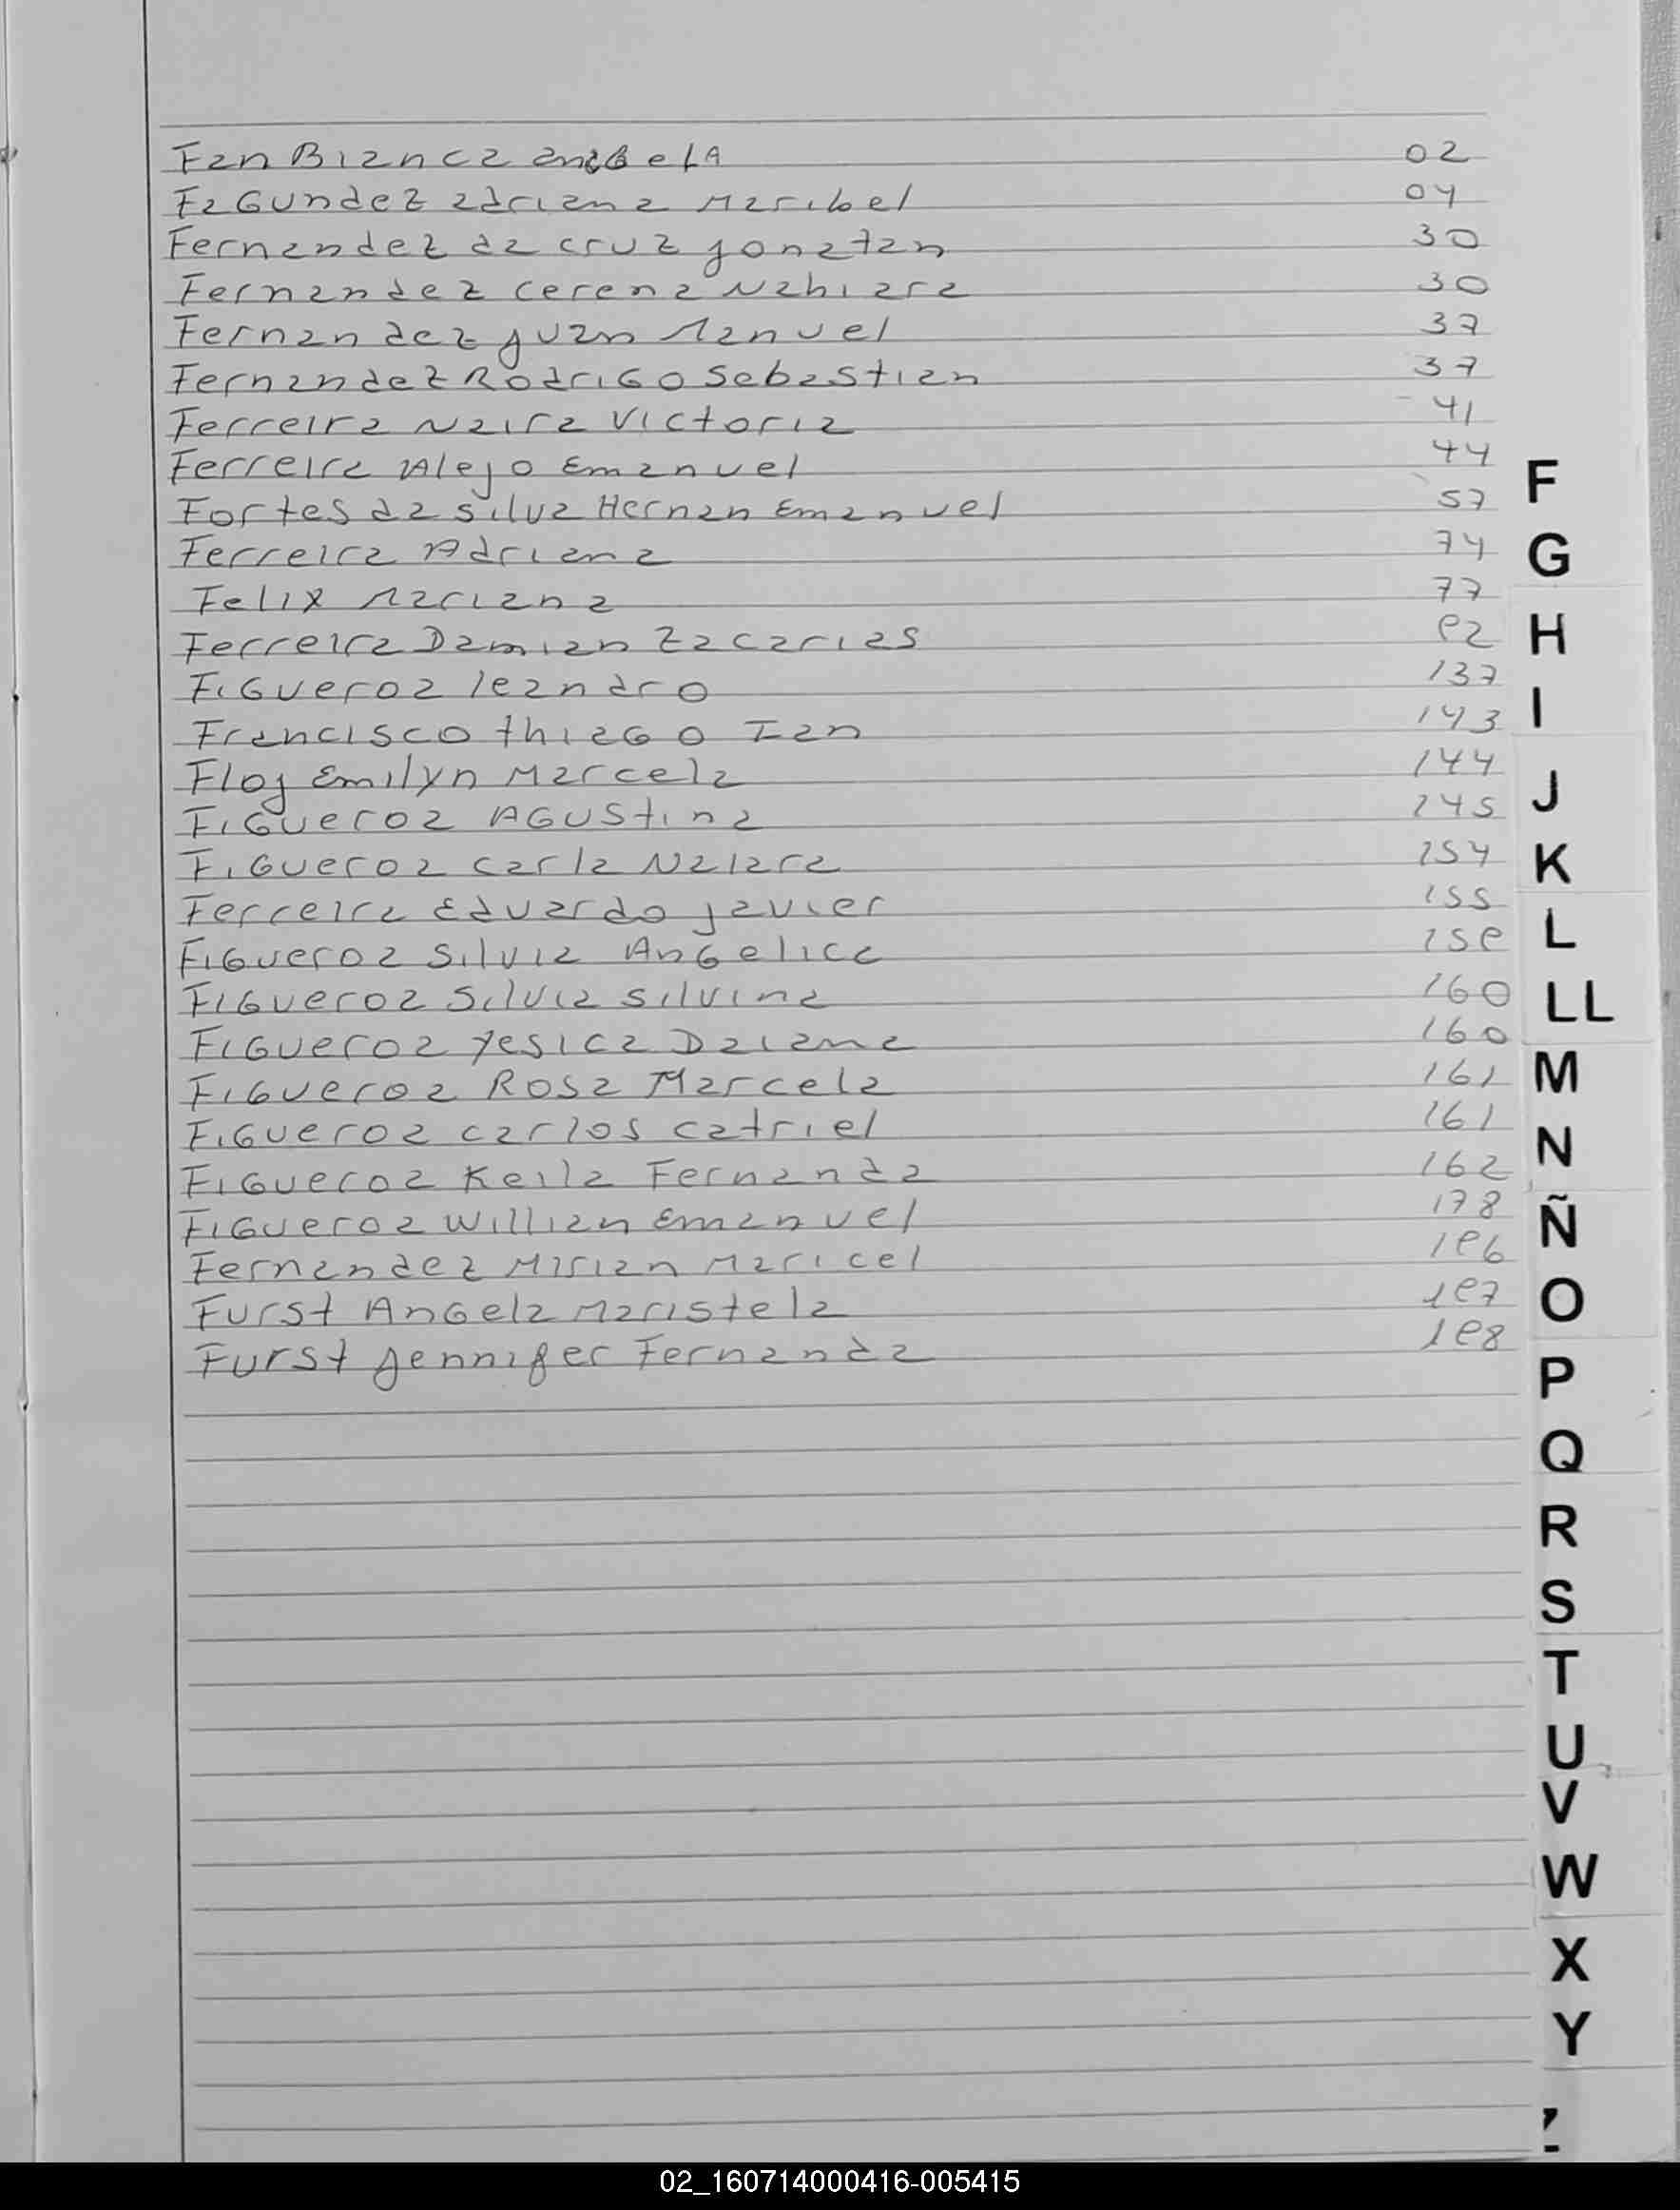 Fan Bianca angela 02
Fagundez adriana Maribel 04
Fernandez da cruz jonatan 30
Fernandez cerena Nahiara 30
Fernandez juan Manuel 37
Fernandez Rodrigo Sebastian 37
Ferreira Naira Victoria 41
Ferreira Alejo Emanuel 44
Fortes da silva Hernan Emanuel 57
Ferreira Adriana 74
Felix Mariana 77
Ferreira Damian Zacarias 82
Figueroa leandro 137
Francisco thiago Ian 143
Floj Emilyn Marcela 144
Figueroa Agustina 145
Figueroa carla Naiara 154
Ferreira Eduardo javier 155
Figueroa Silvia Angelica 158
Figueroa Silvia silvina 160
Figueroa yesica Daiana 160
Figueroa Rosa Marcela 161
Figueroa carlos catriel 161
Figueroa Keila Fernanda 162
Figueroa Willian Emanuel 178
Fernandez Mirian Maricel 186
Furst Angela Maristela 187
Furst jennifer Fernanda 188
F
G
H
I
J
K
L
LL
M
N
Ñ
O
P
Q
R
S
T
U
V
W
X
Y
02_160714000416-005415